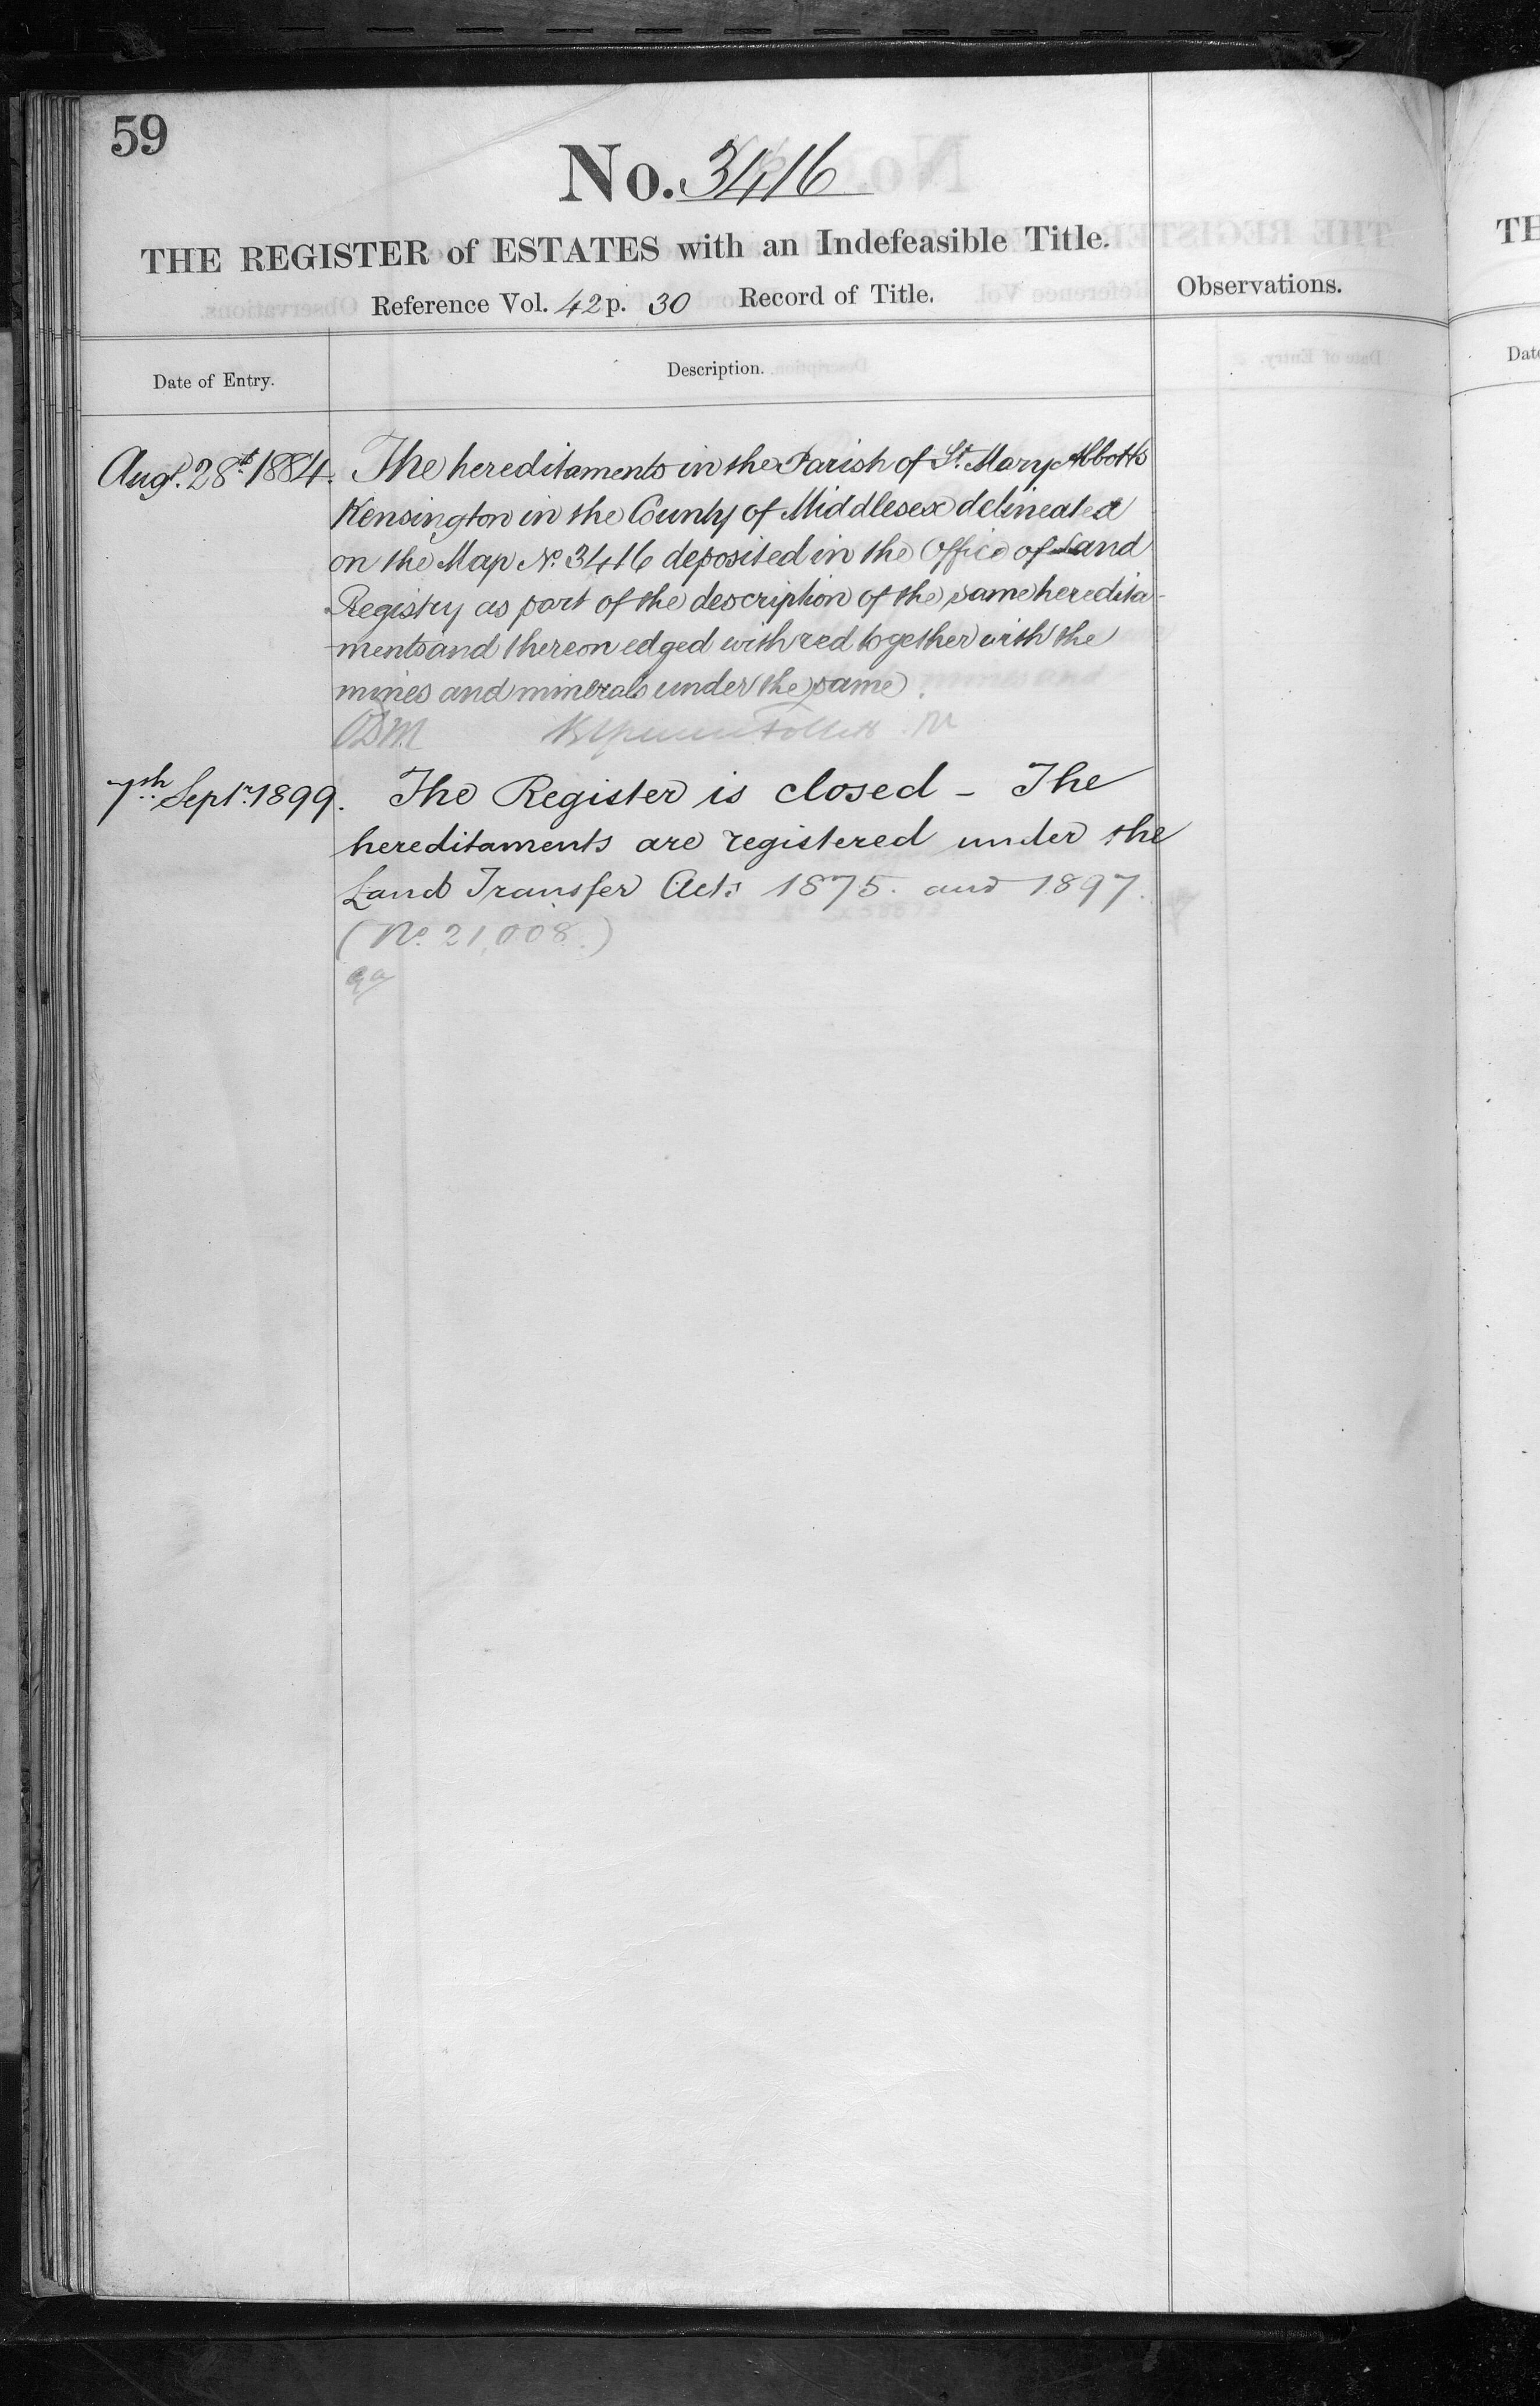 59
No. 3416
THE REGISTER of ESTATES with an Indefeasible Title.
Reference Vol. 42 p. 30 Record of Title.
Observations.
Date of Entry.
Description.
Augt. 28th 1884. The hereditaments in the Parish of St. Mary Abbotts
Kensington in the County of Middlesex delineated
on the Map No. 3416 deposited in the Office of Land
Registry as part of the description of the same heredita-
ments and thereon edged with red together with the
mines and minerals under the same.
7th Septr. 1899. The Register is closed – The
hereditaments are registered under the
Land Transfer Acts 1875 and 1897.
(No. 21,008.)
TH
Date